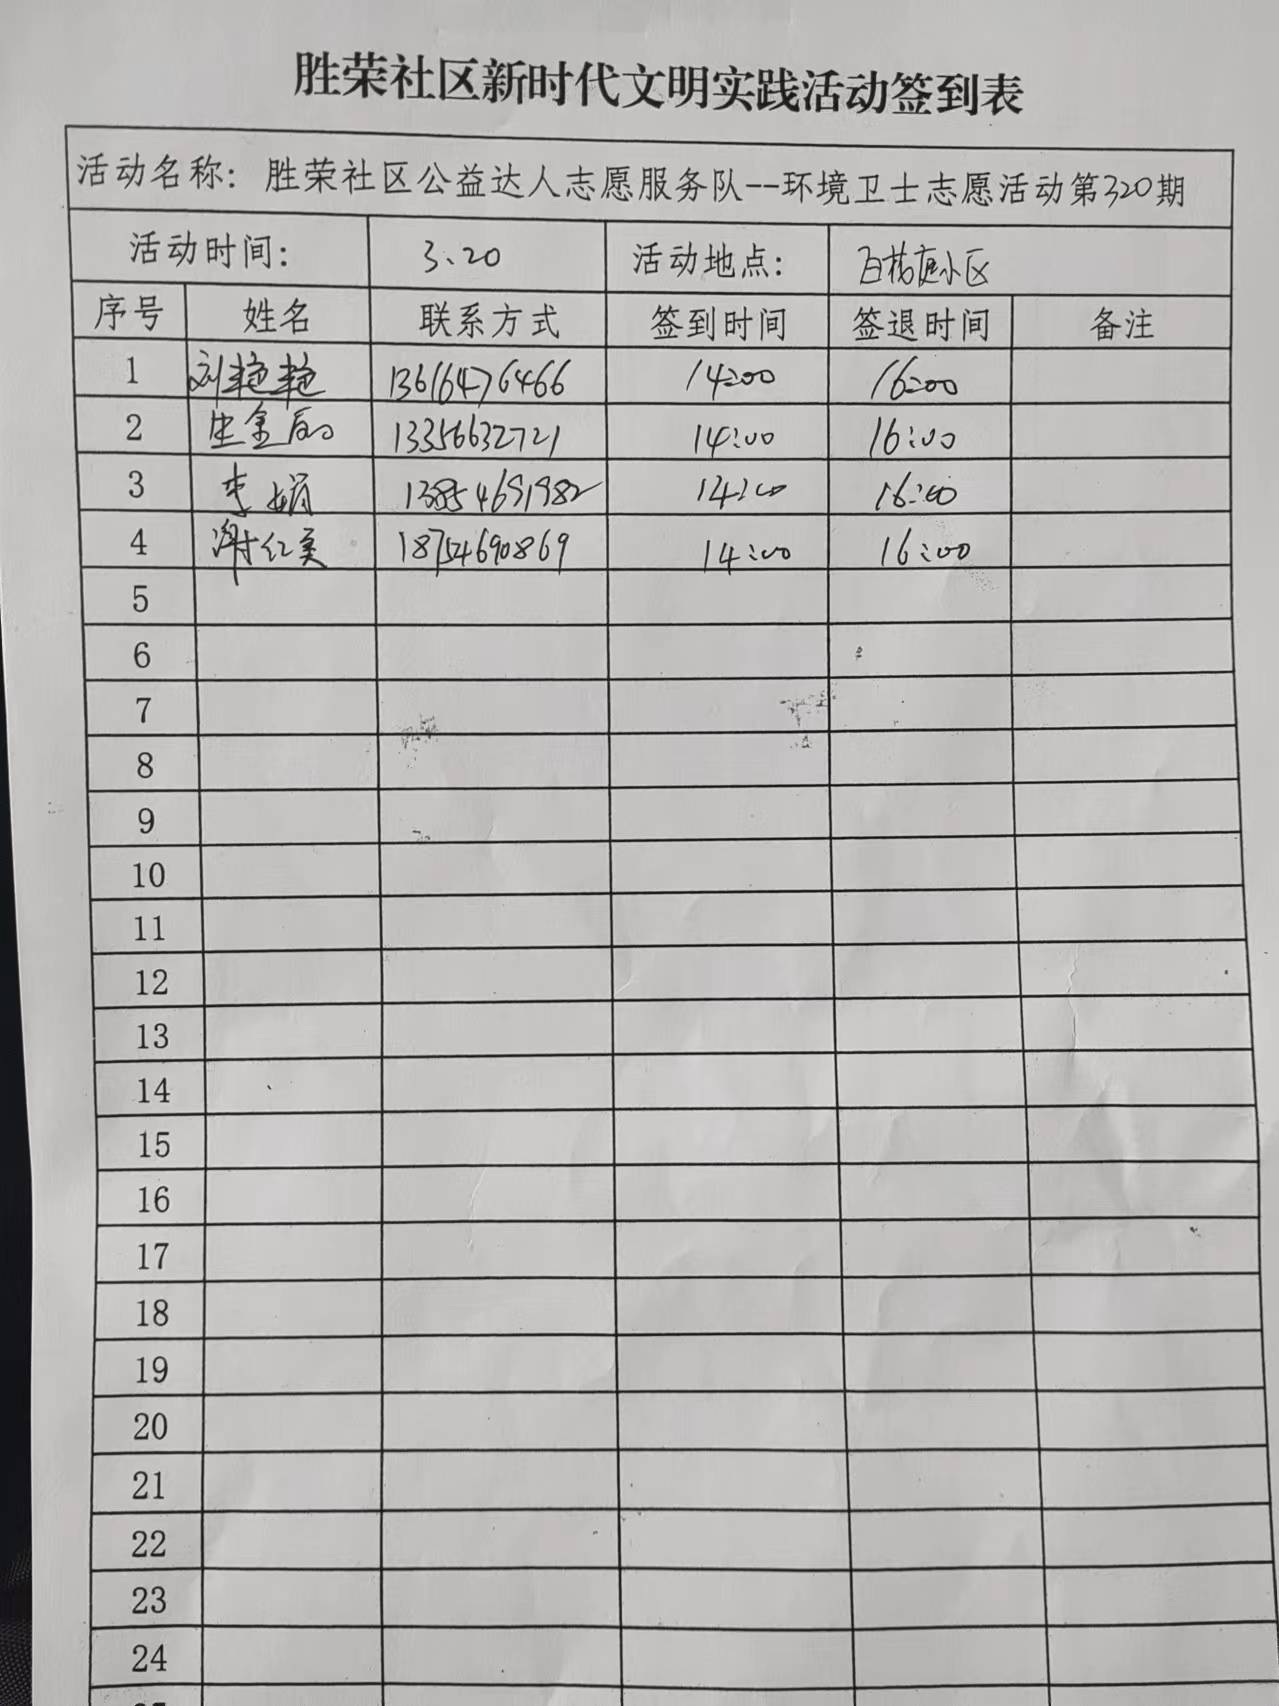 胜荣社区新时代文明实践活动签到表
活动名称：胜荣社区公益达人志愿服务队--环境卫士志愿活动第320期
活动时间： 3.20 活动地点： 小区
序号 姓名 联系方式 签到时间 签退时间 备注
1 刘艳艳 13616476466 14:00 16:00
2 13356632721 14:00 16:00
3 李娟 13854691982 14:00 16:00
4 谢红美 18754690869 14:00 16:00
5
6
7
8
9
10
11
12
13
14
15
16
17
18
19
20
21
22
23
24